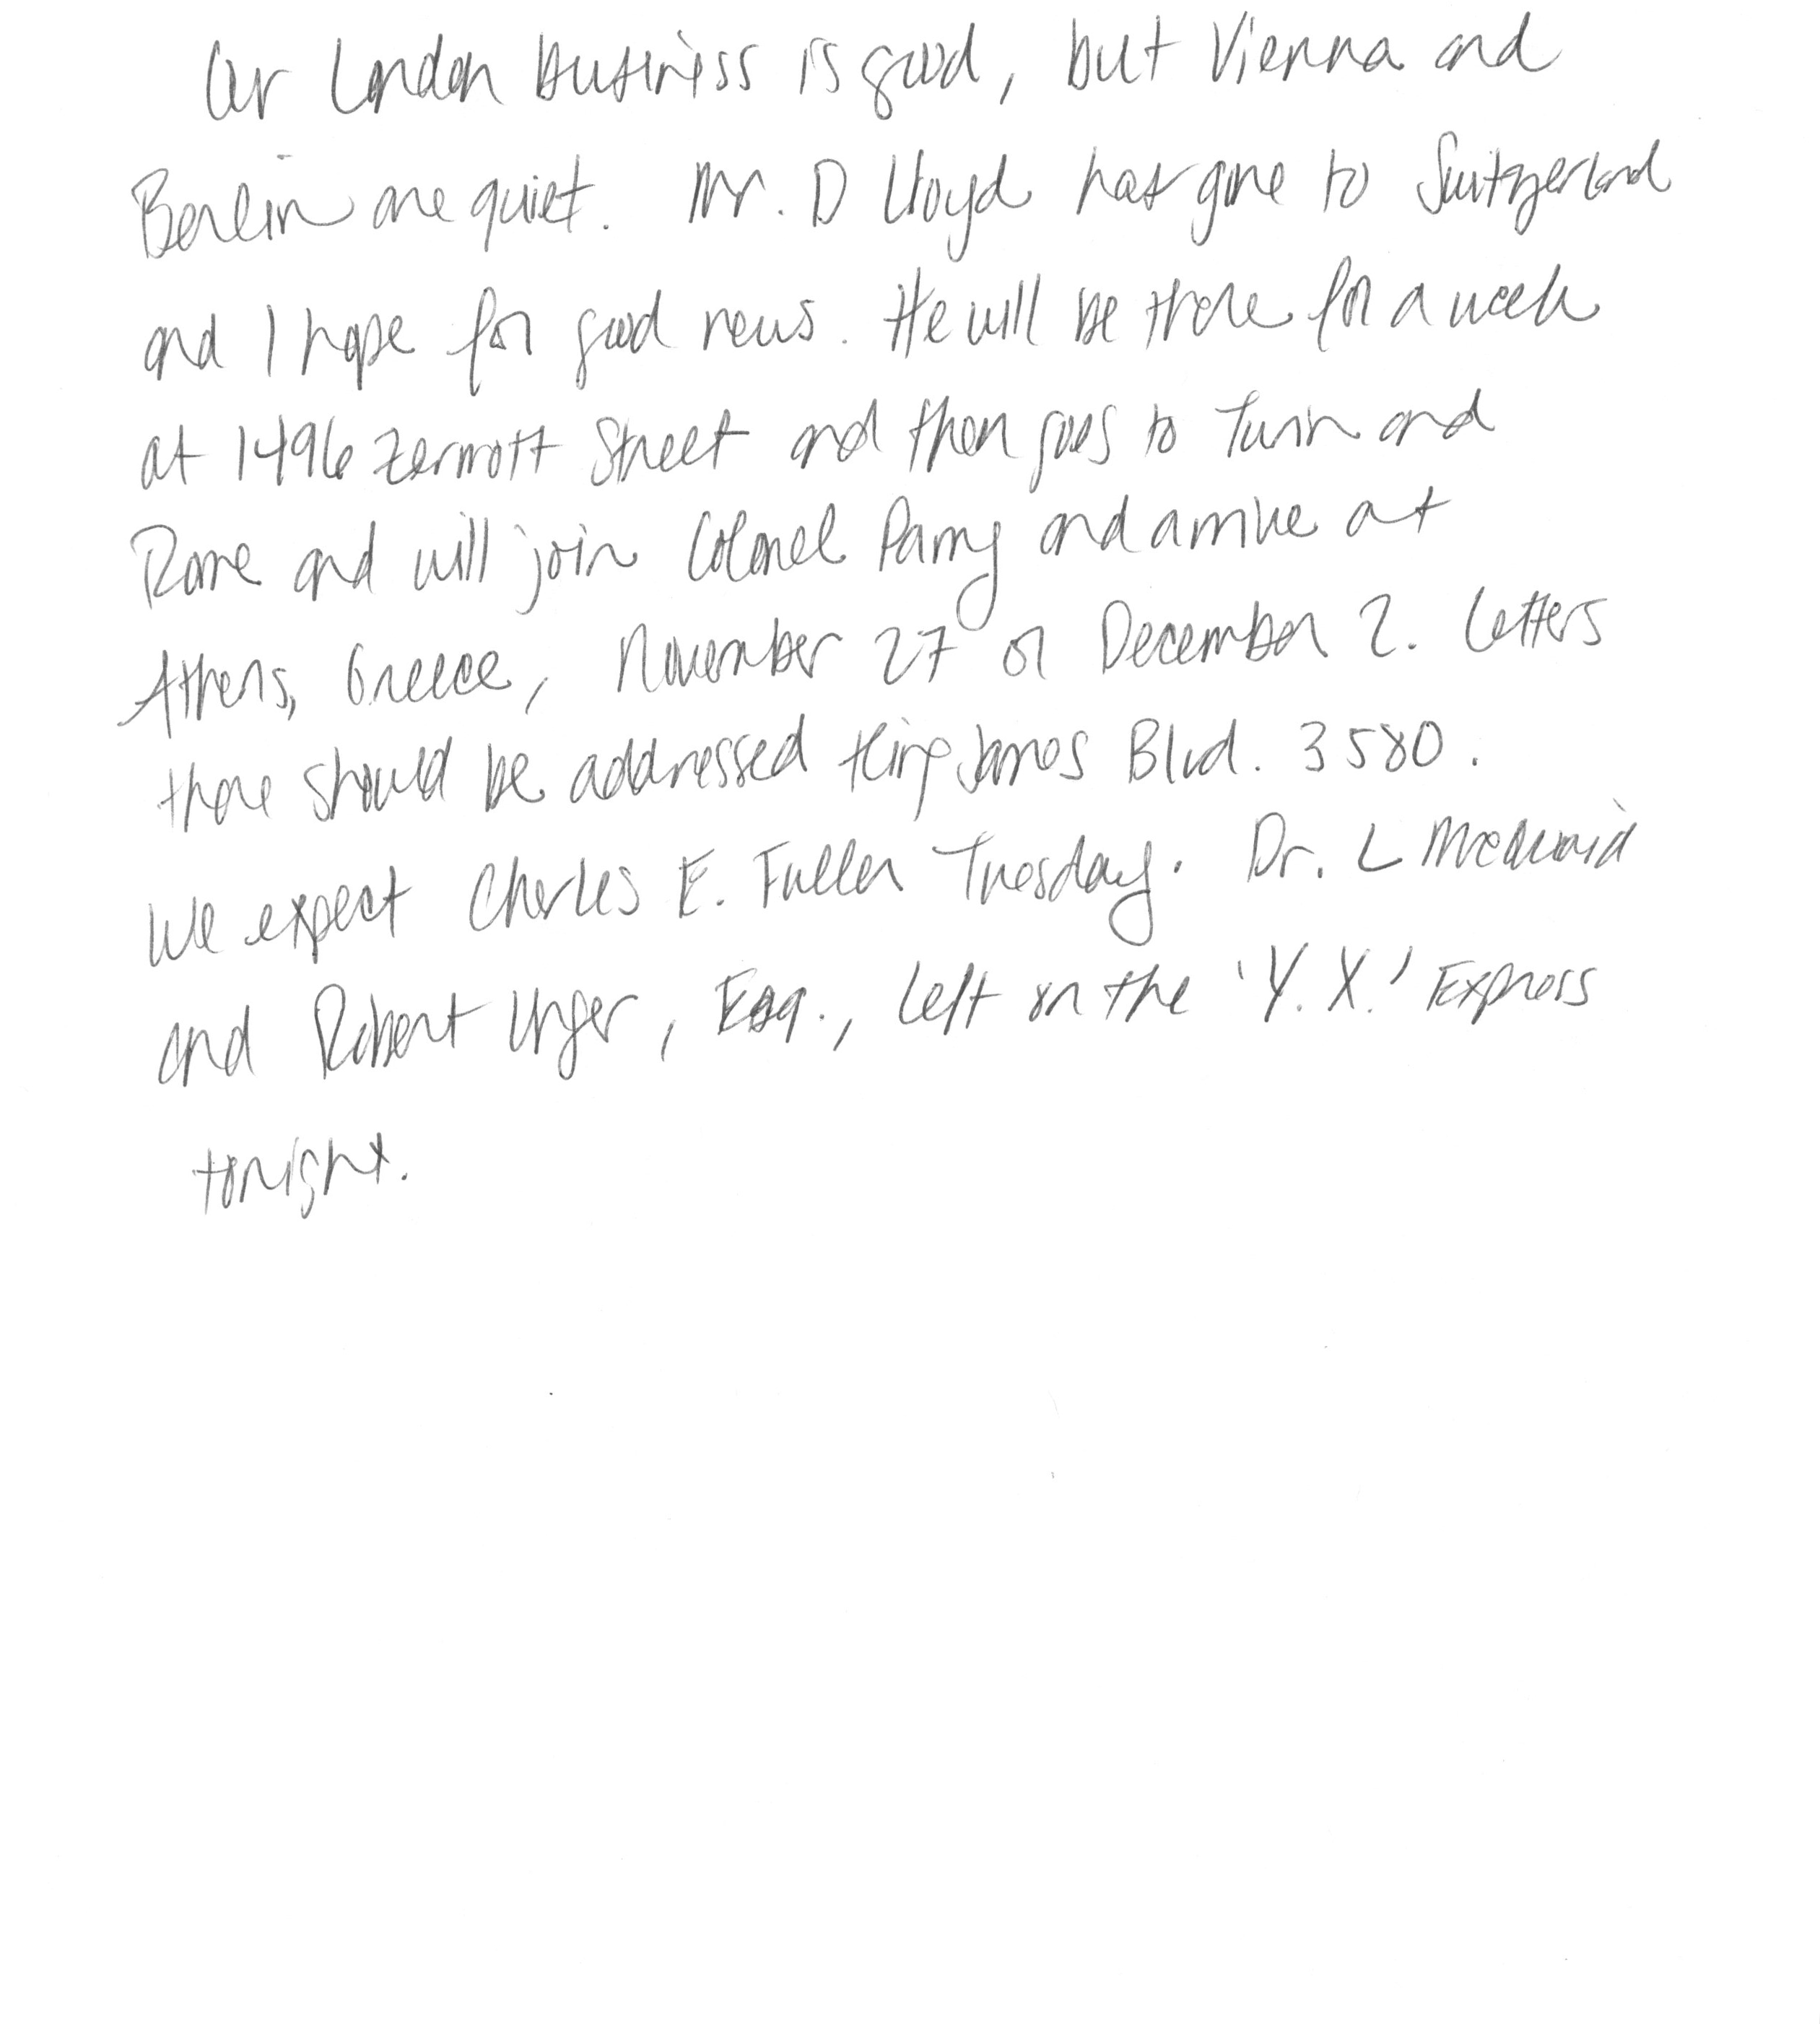 Our London business is good, but Vienna and
Berlin are quiet. Mr. D Lloyd has gone to Switzerland
and I hope for good news. He will be there for a week
at 1496 Zermott Street and then goes to Turin and
Rome and will join Colonel Parry and arrive at
Athens, Greece, November 27 or December 2. Letters
there should be addressed King James Blvd. 3580.
We expect Charles E. Fuller Tuesday. Dr. L McQuaid
and Robert Unger, Esq., left on the 'Y. X.' Express
tonight.